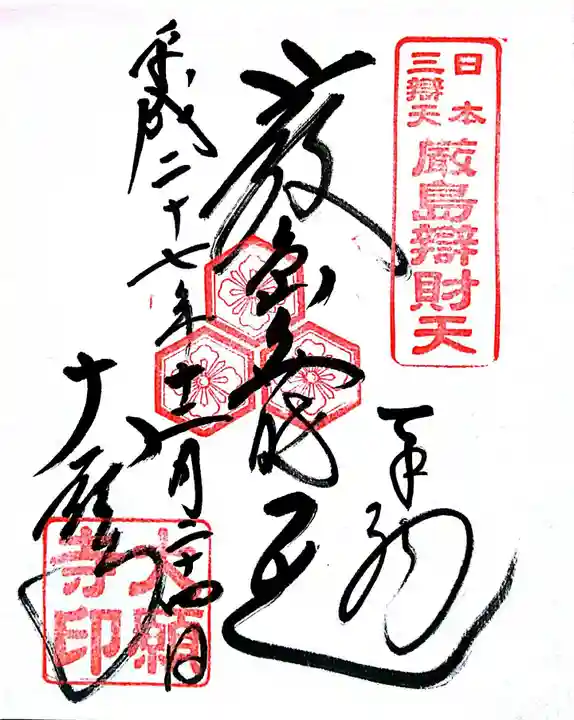 日本
三辯天
厳島辯財天
奉拝
厳島辯財天
平成二十七年十二月二十四日
大願寺
大願
寺印